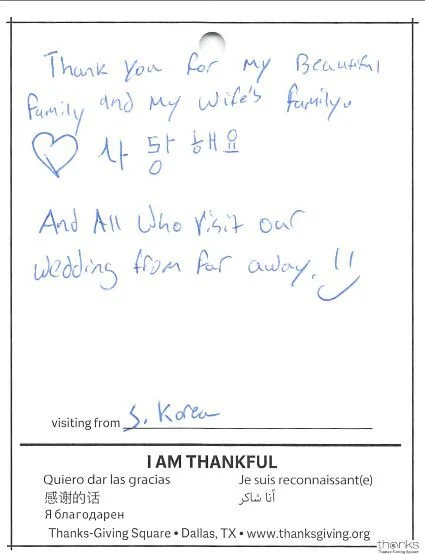 Thank you for my Beautiful
family and my wife's family.
♡ 사랑해요
And All Who visit our
wedding from far away.
visiting from S. Korea
I AM THANKFUL
Quiero dar las gracias Je suis reconnaissant(e)
感谢的话 أنا شاكر
Я благодарен
Thanks-Giving Square • Dallas, TX • www.thanksgiving.org
thanks
Thanks-Giving Square